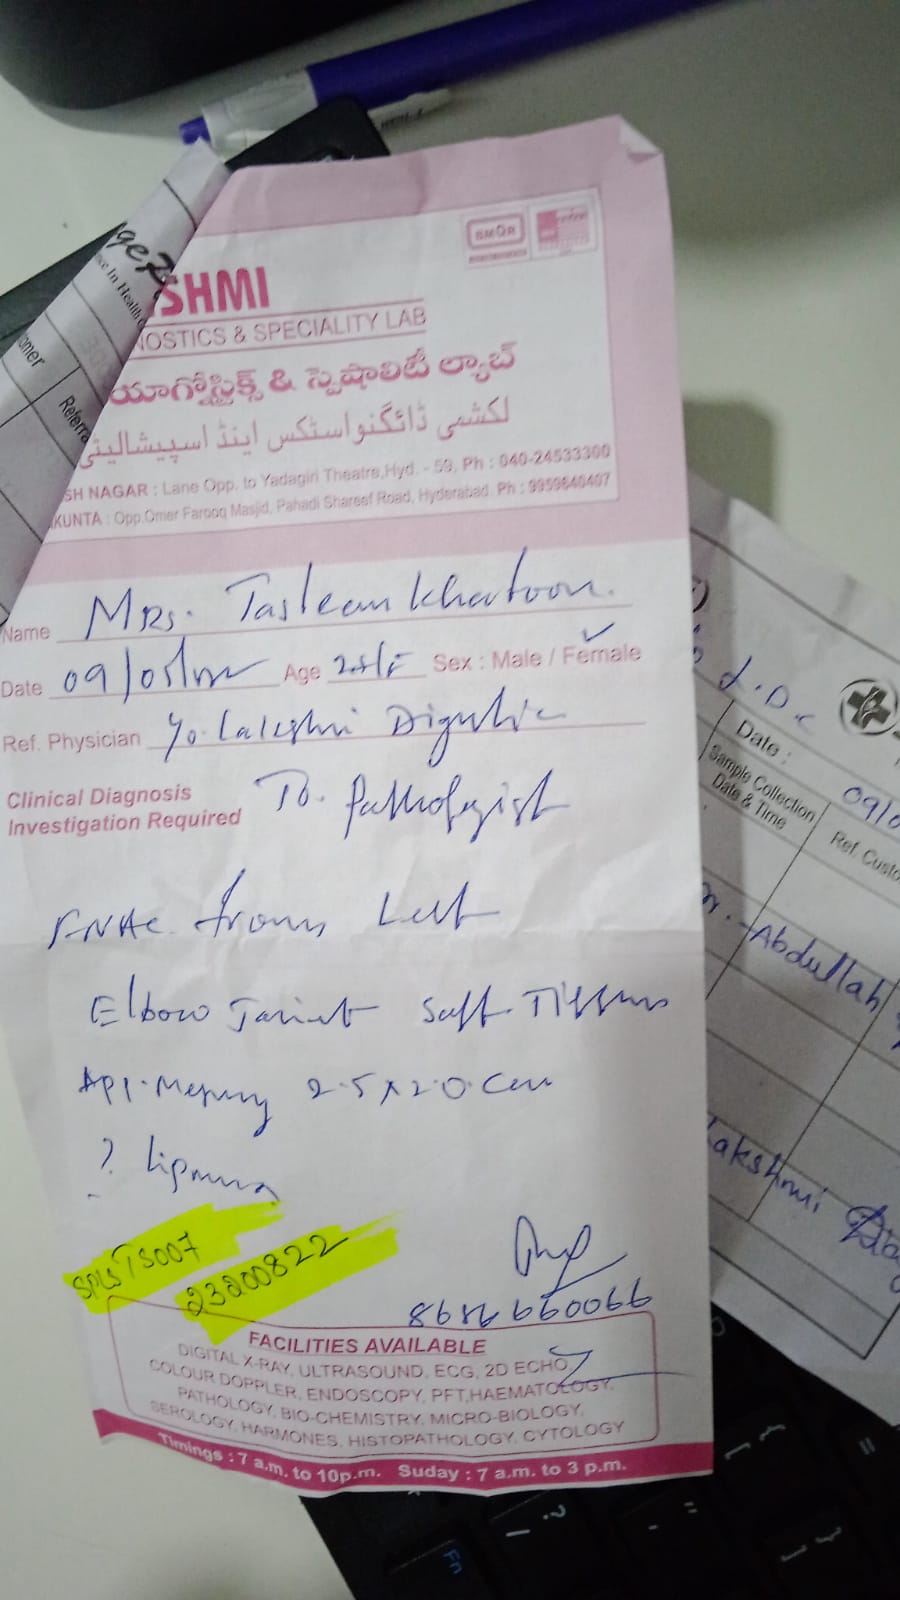 SMOR
SHMI
NOSTICS & SPECIALITY LAB
యాగ్నోస్టిక్స్ & స్పెషాలిటీ ల్యాబ్
لکشمی ڈائگنواسٹکس اینڈ اسپیشالیٹی
SH NAGAR : Lane Opp. to Yadagiri Theatre,Hyd. - 59, Ph : 040-24533300
KUNTA : Opp.Omer Farooq Masjid, Pahadi Shareef Road, Hyderabad. Ph : 9959640407
Name MRs. Tasleem Khatoon.
Date 09/05/ Age Sex : Male / Female
Ref. Physician Lakshmi
Clinical Diagnosis To. Pathologist
Investigation Required
FNAC from Left
Elbow Joint Soft Tissues
2.5 x 2.0 cm
? Lipoma
SPLSTS007
23200822
8686660066
FACILITIES AVAILABLE
DIGITAL X-RAY, ULTRASOUND, ECG, 2D ECHO,
COLOUR DOPPLER, ENDOSCOPY, PFT,HAEMATOLOGY,
PATHOLOGY, BIO-CHEMISTRY, MICRO-BIOLOGY,
SEROLOGY, HARMONES, HISTOPATHOLOGY, CYTOLOGY
Timings : 7 a.m. to 10p.m. Suday : 7 a.m. to 3 p.m.
ce In Health
omer
Referra
L.D.C
Date :
Sample Collection
Date & Time
09/0
Ref. Custo
Abdullah
Lakshmi
Fn